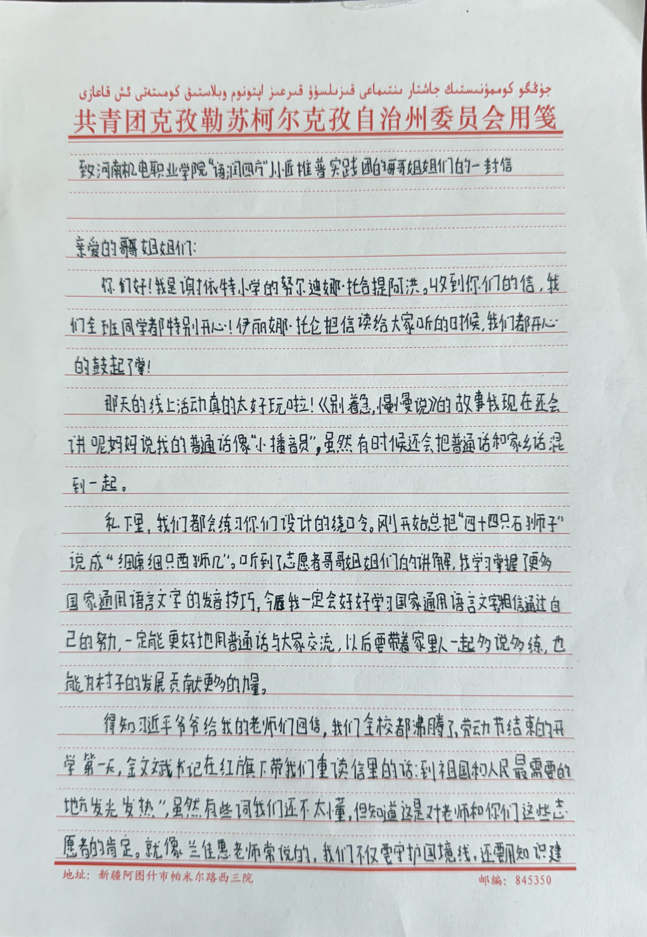 جۇڭگو كوممۇنىستىك جاشتار ىنتىماعى قىزىلسۇۇ قىرعىز اپتونوم وبلاستىق كومىتەتى ئىش قاعازى
共青团克孜勒苏柯尔克孜自治州委员会用笺
致河南机电职业学院“语润四方”小匠推普实践团的哥哥姐姐们的一封信
亲爱的哥哥姐姐们：
你们好！我是谢依特小学的努尔迪娜·托合提阿洪。收到你们的信，我
们全班同学都特别开心！伊丽娜·托仑把信读给大家听的时候，我们都开心
的鼓起了掌！
那天的线上活动真的太好玩啦！《别着急，慢慢说》的故事我现在还会
讲呢妈妈说我的普通话像“小播音员”，虽然有时候还会把普通话和家乡话混
到一起。
私下里，我们都会练习你们设计的绕口令。刚开始总把“四十四只石狮子”
说成“细席细只西狮几”。听到了志愿者哥哥姐姐们的讲解，我学习掌握了更多
国家通用语言文字的发音技巧，今后我一定会好好学习国家通用语言文字相信通过自
己的努力，一定能更好地用普通话与大家交流，以后要带着家里人一起多说多练，也
能为村子的发展贡献更多的力量。
得知习近平爷爷给我的老师们回信，我们全校都沸腾了，劳动节结束的开
学第一天，金文斌书记在红旗下带我们重读信里的话：到祖国和人民最需要的
地方发光发热”，虽然有些词我们还不太懂，但知道这是对老师和你们这些志
愿者的肯定。就像兰佳惠老师常说的，我们不仅要守护国境线，还要用知识建
地址：新疆阿图什市帕米尔路西三院
邮编：845350